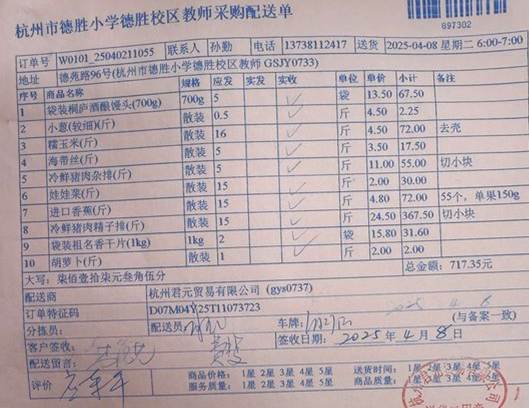 杭州市德胜小学德胜校区教师采购配送单
897302
订单号 W0101_25040211055 联系人 孙勤 电话 13738112417 送货 2025-04-08 星期二 6:00-7:00
地址 德苑路96号(杭州市德胜小学德胜校区教师 GSJY0733)
序号 商品名称 规格 应发 实发 实收 单位 单价 小计 备注
1 袋装桐庐酒酿馒头(700g) 700g 5 袋 13.50 67.50
2 小葱(较细)(斤) 散装 0.5 斤 4.50 2.25
3 糯玉米(斤) 散装 16 斤 4.50 72.00 去壳
4 海带丝(斤) 散装 5 斤 3.50 17.50
5 冷鲜猪肉杂排(斤) 散装 5 斤 11.00 55.00 切小块
6 娃娃菜(斤) 散装 15 斤 2.00 30.00
7 进口香蕉(斤) 散装 15 斤 4.80 72.00 55个，单果150g
8 冷鲜猪肉精子排(斤) 散装 15 斤 24.50 367.50 切小块
9 袋装祖名香干片(1kg) 1kg 2 袋 15.80 31.60
10 胡萝卜(斤) 散装 1 斤 2.00 2.00
大写：柒佰壹拾柒元叁角伍分 总金额：717.35元
配送商 杭州君元贸易有限公司 (gys0737)
订单特征码 D07M04Y25T11073723
分拣员: 配送员: 车牌: (与备案一致)
客户签收: 签收日期: 2025年4月8日
配送留言:
评价 商品价格: 1星 2星 3星 4星 5星 送货时间: 1星 2星 3星 4星 5星
服务质量: 1星 2星 3星 4星 5星 商品质量: 1星 2星 3星 4星 5星